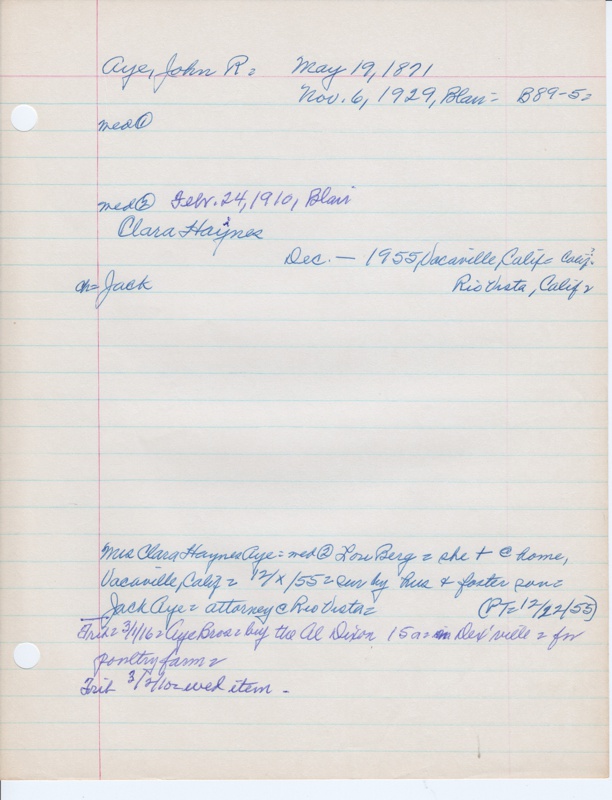 Aye, John R = May 19, 1871
Nov. 6, 1929, Blair = B89-5=
med①
med② Febr. 24, 1910, Blair
Clara Haynes
Dec. — 1955, Vacaville, Calif = Calif.?
ch= Jack Rio Vista, Calif =
Mrs Clara Haynes Aye = med② Lou Berg = she + @ home,
Vacaville, Calif = 12/x/55 = sur by hus & foster son =
Jack Aye = attorney @ Rio Vista = (PT=12/22/55)
Trib= 3/1/16 = Aye Bros = buy the Al Dixon 15a = in Dex'ville = for
poultry farm =
Trib 3/2/10 = wed item -